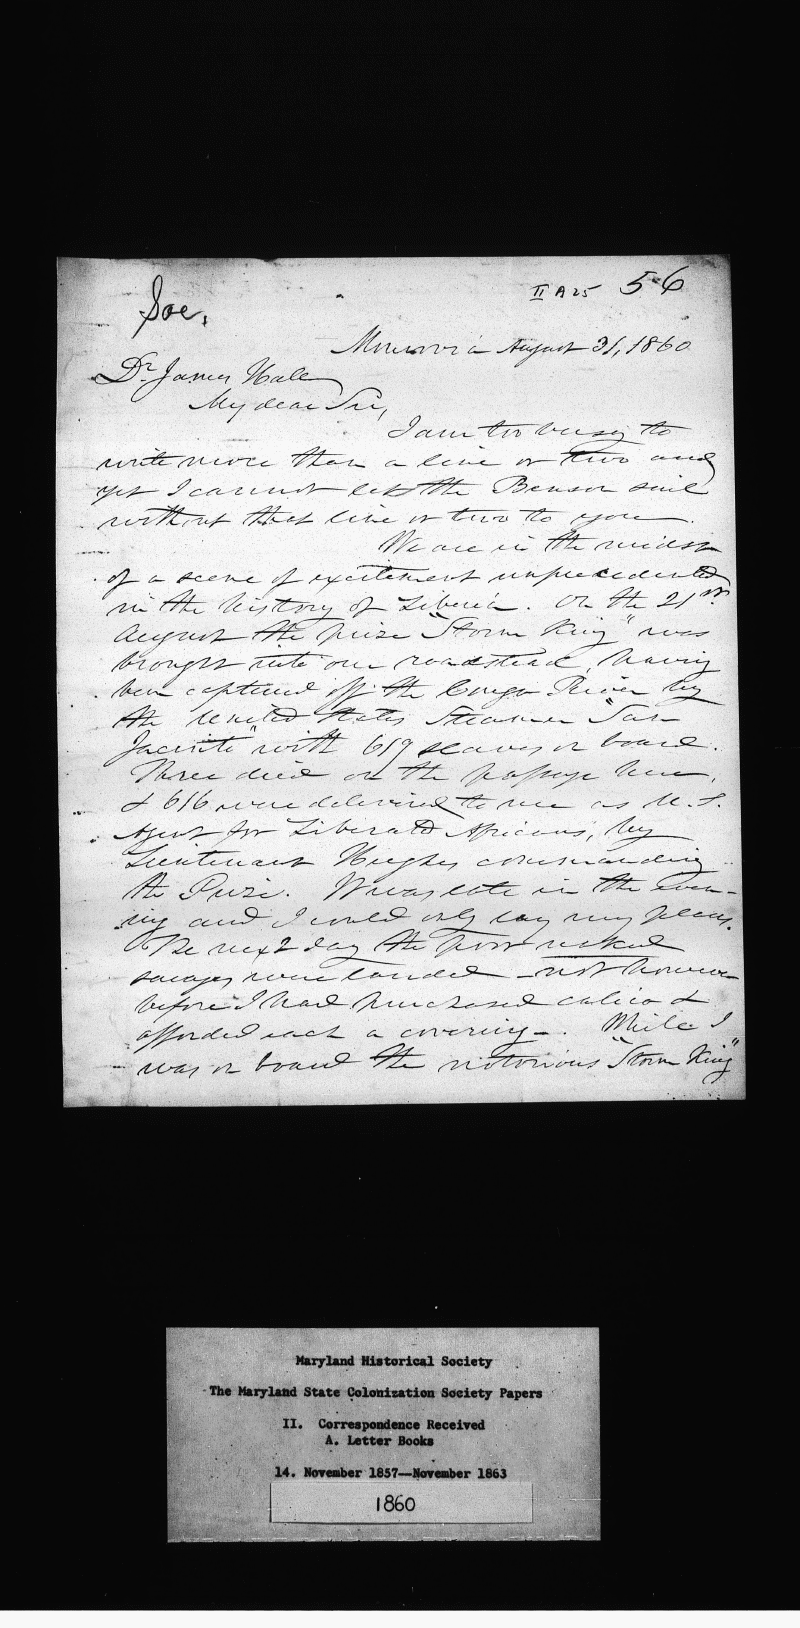 Soc.
II A 25 56
Monrovia August 31, 1860
Dr. James Hall
My dear Sir,
I am too busy to
write more than a line or two and
yet I cannot let the Benson sail
without that line or two to you.
We are in the midst
of a scene of excitement unprecedented
in the history of Liberia. On the 21st
August the prize "Storm King" was
brought into our roadstead, having
been captured off the Congo River by
the United States Steamer "San
Jacinto" with 619 slaves on board.
Three died on the passage here,
& 616 were delivered to me as U.S.
Agent for Liberated Africans, by
Lieutenant Hughes commanding
the Prize. It was late in the even-
ing and I could only lay my plans.
The next day the poor naked
savages were landed - not however
before I had purchased calico &
afforded each a covering -. While I
was on board the notorious "Storm King"
Maryland Historical Society
The Maryland State Colonization Society Papers
II. Correspondence Received
A. Letter Books
14. November 1857--November 1863
1860